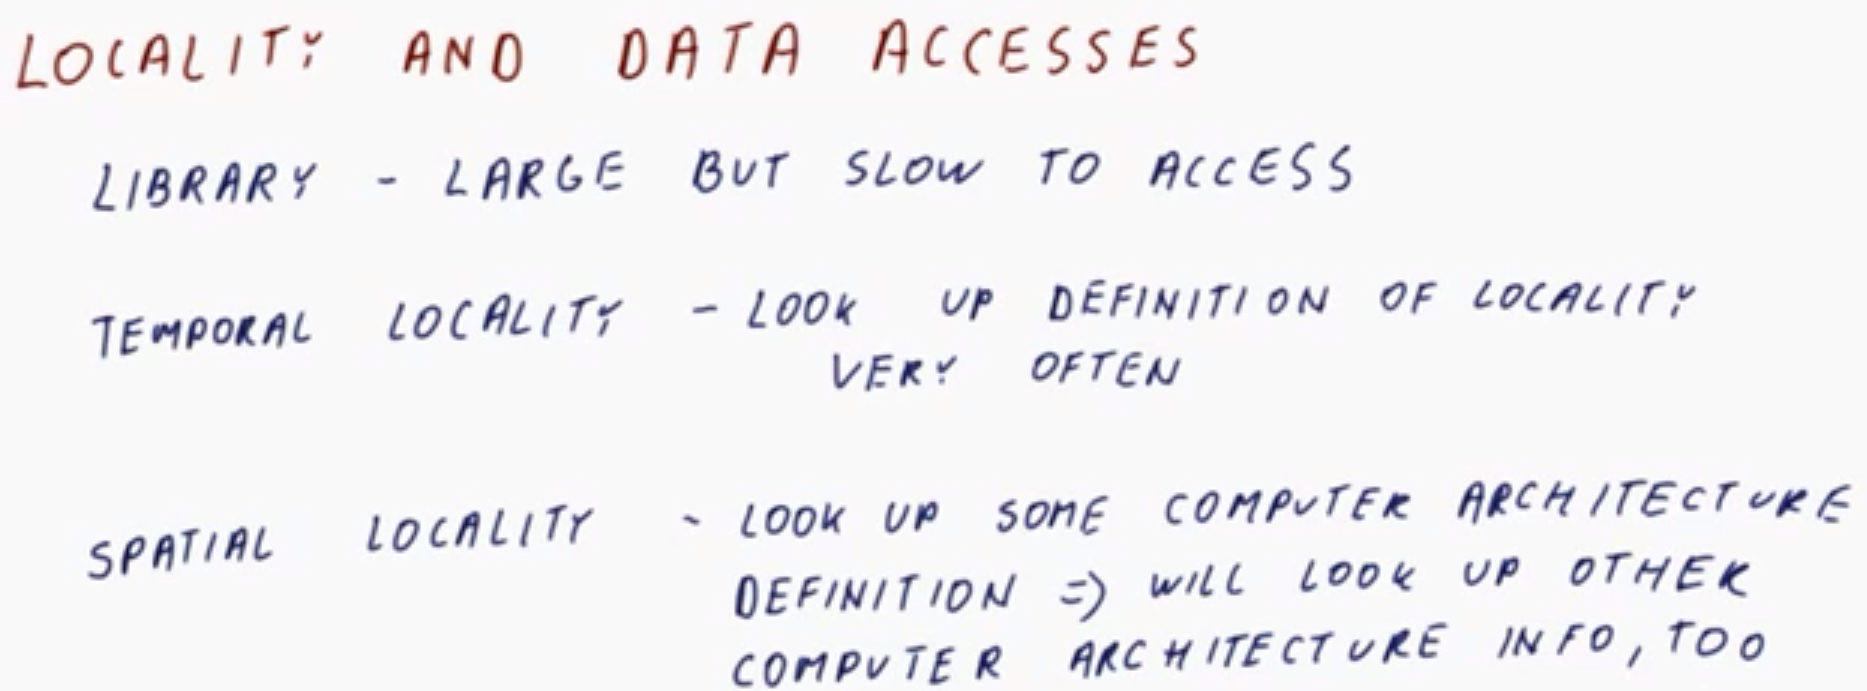 LOCALITY AND DATA ACCESSES
LIBRARY - LARGE BUT SLOW TO ACCESS
TEMPORAL LOCALITY - LOOK UP DEFINITION OF LOCALITY
VERY OFTEN
SPATIAL LOCALITY - LOOK UP SOME COMPUTER ARCHITECTURE
DEFINITION => WILL LOOK UP OTHER
COMPUTER ARCHITECTURE INFO, TOO